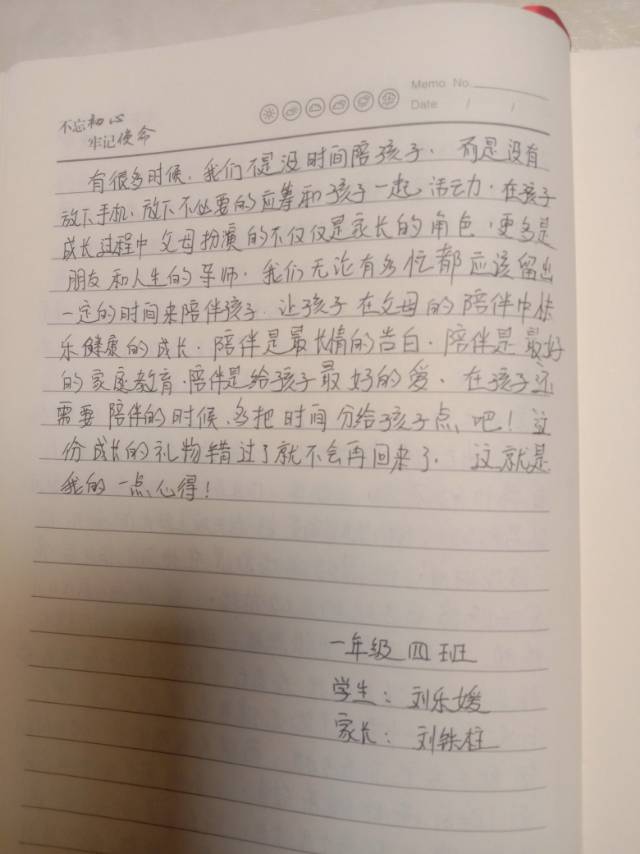 Memo No.
Date / /
不忘初心
牢记使命
有很多时候，我们不是没时间陪孩子．而是没有
放下手机，放下不必要的应筹和孩子一起活动．在孩子
成长过程中父母扮演的不仅仅是家长的角色，更多是
朋友和人生的导师．我们无论有多忙都应该留出
一定的时间来陪伴孩子．让孩子在父母的陪伴中快
乐健康的成长．陪伴是最长情的告白．陪伴是最好
的家庭教育．陪伴是给孩子最好的爱．在孩子还
需要陪伴的时候，多把时间分给孩子点吧！这
份成长的礼物错过了就不会再回来了．这就是
我的一点心得！
一年级四班
学生：刘乐媛
家长：刘铁柱